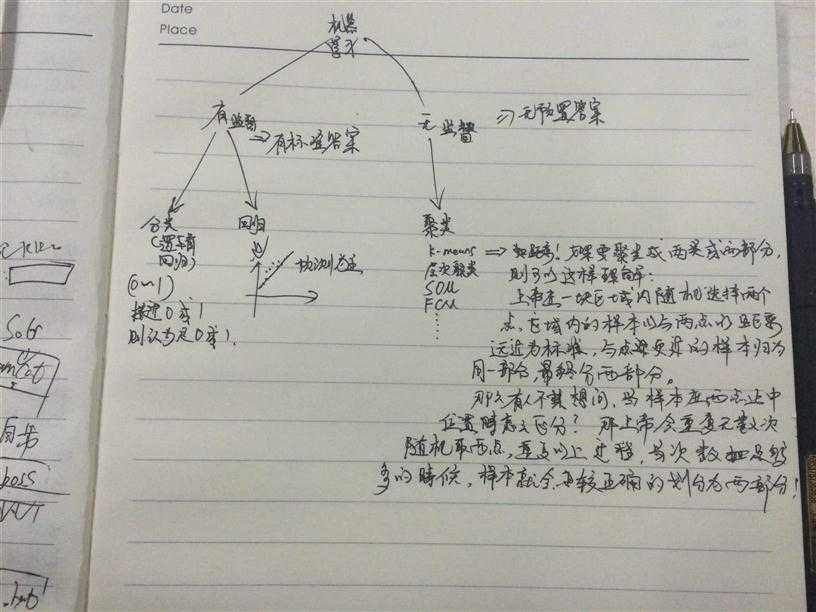 Date
Place
机器
学习
有监督
⇒有标准答案
无监督
⇒无预置答案
分类
(逻辑
回归)
(0~1)
接近0或1
则认为是0或1.
回归
聚类
k-means ⇒ 如果要聚类成两类或两部分,
层次聚类 则可以这样理解:
SOM
FCM
上帝在一块区域内随机选择两个
点,区域内的样本以与两点的距离
远近为标准,与点距更近的样本归为
同一部分,最终分两部分。
那么有人不禁想问,当样本在两点正中
位置时怎么区分?那上帝会重复无数次
随机取两点,重复以上过程,当次数足够
多的时候,样本就会比较正确的划分为两部分!
Solr
boss